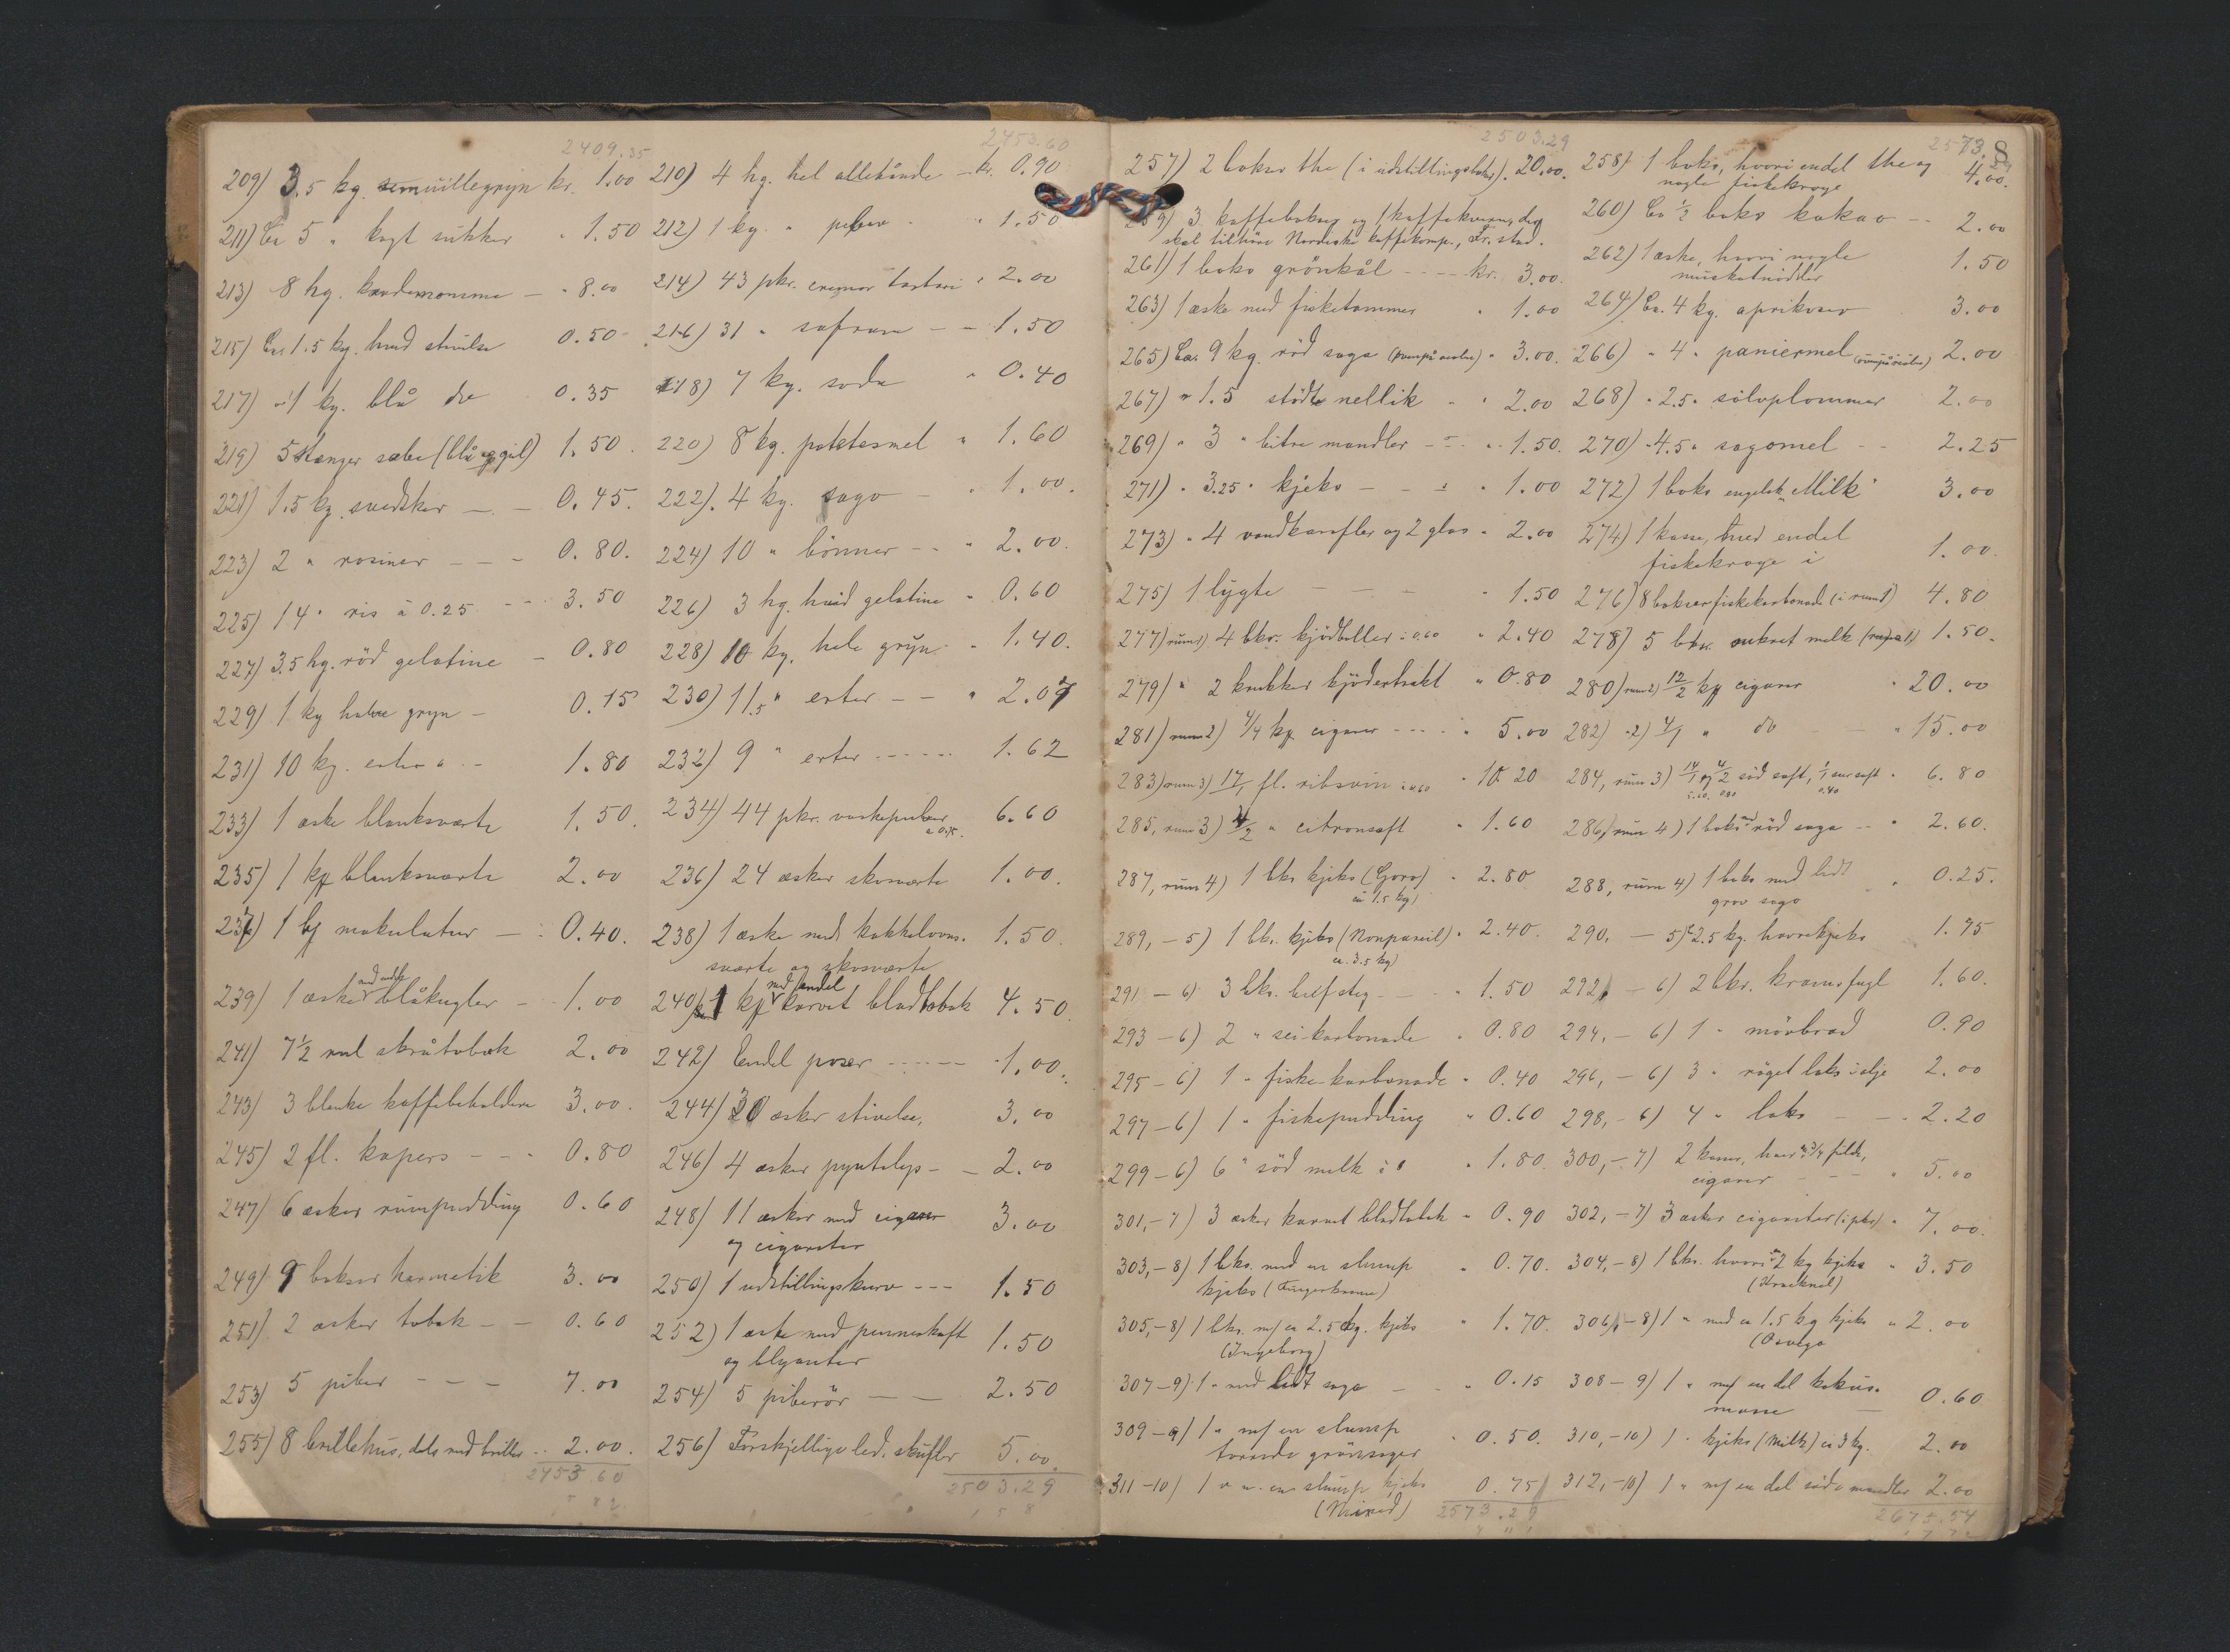 2409.35
209) 3.5 kg. semuillegryn kr. 1.00
211) Ca 5 " kagt sukker " 1.50
213) 8 hg. kardemomme — " 8.00
215) Ca 1.5 kg. hvid stivelse 0.50
217) 1 kg. blå do 0.35
219) 5 stænger sæbe (blå og gul) 1.50
221) 1.5 kg. svedsker — — 0.45.
223) 2 " rosiner — — — 0.80.
225) 14 " ris à 0.25 — — 3.50
227) 3.5 hg. röd gelatine — 0.80
229) 1 kg halve gryn — 0.15
231) 10 kg. erter " — 1.80
233) 1 æske blanksværte 1.50.
235) 1 kg blanksværte 2.00
237) 1 kg makulatur — 0.40.
239) 1 æske med endel blåkugler — 1.00
241) 7 1/2 rul skråtobak 2.00
243) 3 blanke kaffebeholdere 3.00.
245) 2 fl. kapers — — — 0.80
247) 6 æsker rumpudding 0.60
249) 9 bokser hermetik 3.00
251) 2 æsker tobak — — 0.60
253) 5 piber — — — 7.00
255) 8 brillehus, dels med briller — 2.00.
2453.60
2453.60
210) 4 hg. hel allehånde — kr. 0.90
212) 1 kg. " peber " 1.50
214) 43 pkr. cremor tartari " 2.00
216) 31 " safran — — 1.50
218) 7 kg. soda " 0.40
220) 8 kg. potetesmel " 1.60
222) 4 kg. sago — " 1.00.
224) 10 " bönner — — " 2.00.
226) 3 hg. hvid gelatine " 0.60
228) 10 kg. hele gryn " 1.40.
230) 11.5 " erter — — " 2.07
232) 9 " erter — — — 1.62
234) 44 pkr. vaskepulver 6.60
à 0.15.
236) 24 æsker skosværte 1.00.
238) 1 æske med kakkelovns- 1.50.
sværte og skosværte
240) 1 kg med endel karvet bladtobak 4.50.
242) Endel poser — — — 1.00.
244) 30 æsker stivelse, 3.00
246) 4 æsker pyntelys — — 2.00
248) 11 æsker med cigarer 3.00
og cigaretter
250) 1 udstillingskurv — — — 1.50
252) 1 æske med penneskaft 1.50
og blyanter
254) 5 piberör — — 2.50
256) Forskjellige led. skufler 5.00.
2503.29
2503.29
257) 2 bokser the (i udstillingsbokser). 20.00.
259) 3 kaffebokser og 1 kaffekværn, der
skal tilhöre Nordiske kaffekomp., Fr.stad.
261) 1 boks grönkål — — — kr. 3.00.
263) 1 æske med fisketommer " 1.00
265) Ca. 9 kg. röd sago " 3.00.
267) " 1.5 stödt nellik " " 2.00
269) " 3 " bitre mandler — — " 1.50.
271) " 3.25 " kjeks — — " 1.00
273) " 4 vandkarafler og 2 glas " 2.00
275) 1 lygte — — — " 1.50
277) rum 1) 4 bkr. kjödboller à 0.60 " 2.40
279) " 2 krukker kjödextrakt " 0.80
281) rum 2) 4/4 kg cigarer — — — " 5.00
283) rum 3) 17/1 fl. ribsvin à 0.60 " 10.20
285, rum 3) 4/2 " citronsaft " 1.60
287, rum 4) 1 bks kjeks (Goro) " 2.80
ca 1.5 kg)
289, — 5) 1 bks. kjeks (Nonpareil) " 2.40.
ca. 3.5 kg)
291 — 6) 3 bks. bifsteg — — " 1.50
293 — 6) 2 " sei-karbonade " 0.80
295 — 6) 1 " fiske-karbonade " 0.40
297 — 6) 1 " fiskepudding " 0.60
299 — 6) 6 " söd melk " 1.80.
301, — 7) 3 æsker karvet bladtobak " 0.90
303, — 8) 1 bks. med en slump " 0.70.
kjeks (Fingerkrans)
305, — 8) 1 bks. m/ ca 2.5 kg. kjeks " 1.70.
(Ingeborg)
307 — 9) 1 " med lidt sago — " 0.15
309 — 9) 1 " m/ en slump " 0.50.
törrede grönsager
311 — 10) 1 " m. en slump kjeks 0.75
(Mixed)
2573.29
2573.29
8
258) 1 boks, hvori endel the og 4.00.
nogle fiskekroge
260) Ca 1/2 boks kakao — — 2.00
262) 1 æske, hvori nogle 1.50
muskatnödder
264) Ca. 4 kg. aprikoser 3.00
266) " 4 " paniermel 2.00
268) " 2.5 " sölvplommer 2.00
270) " 4.5 " sagomel — — 2.25
272) 1 boks engelsk "Milk" 3.00
274) 1 kasse, med endel
fiskekroge i 1.00.
276) 8 bokser fiskekarbonade (i rum 1) 4.80
278) 5 bks. sukret melk (rum 1) 1.50.
280) rum 2) 12/2 kg cigarer " 20.00
282) " 2) 4/1 " do — — " 15.00
284, rum 3) 14/1 og 4/2 söd saft, 1/1 sur saft " 6.80
286, rum 4) 1 boks m/ röd sago — " 2.60.
288, rum 4) 1 boks med lidt " 0.25.
grov sago
290, — 5) ca 2.5 kg. havrekjeks 1.75
292, — 6) 2 bkr. kramsfugl 1.60.
294, — 6) 1 " mörbrad 0.90
296, — 6) 3 " röget laks i olje 2.00
298, — 6) 4 " laks — — 2.20
300, — 7) 2 kasser, hver ca 3/4 fuld,
cigarer — — — " 5.00
302, — 7) 3 æsker cigaretter (i pkr) " 7.00.
304, — 8) 1 bks. hvori ca 2 kg kjeks " 3.50
(Kracknel)
306, — 8) 1 " med ca 1.5 kg kjeks " 2.00
(Osvego
308 — 9) 1 " m/ en del kokus-
masse — 0.60
310, — 10) 1 " kjeks (Milk) ca 3 kg. 2.00
312, — 10) 1 " m/ en del söde mandler 2.00
2675.54